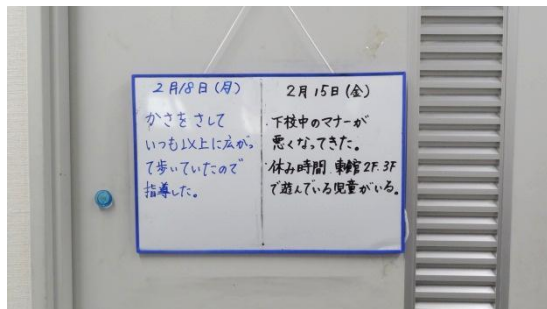 2月18日(月)
かさをさして
いつも以上に広がっ
て歩いていたので
指導した。
2月15日(金)
下校中のマナーが
悪くなってきた。
休み時間 東館2F.3F
で遊んでいる児童がいる。